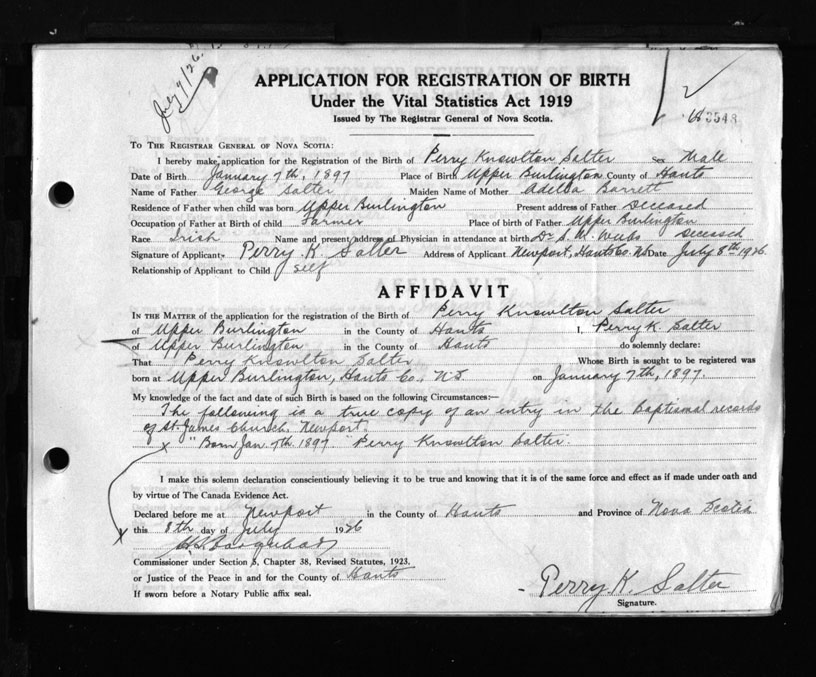 July 9/26.
APPLICATION FOR REGISTRATION OF BIRTH
Under the Vital Statistics Act 1919
Issued by The Registrar General of Nova Scotia.
3548
TO THE REGISTRAR GENERAL OF NOVA SCOTIA:
I hereby make application for the Registration of the Birth of Perry Knowlton Salter Sex Male
Date of Birth January 7th, 1897 Place of Birth Upper Burlington County of Hants
Name of Father George Salter Maiden Name of Mother Adelia Barrett
Residence of Father when child was born Upper Burlington Present address of Father Deceased
Occupation of Father at Birth of child Farmer Place of birth of Father Upper Burlington
Race Irish Name and present address of Physician in attendance at birth Dr. S. M. Weeks Deceased
Signature of Applicant Perry K. Salter Address of Applicant Newport, Hants Co. NS Date July 8th 1926
Relationship of Applicant to Child self
AFFIDAVIT
IN THE MATTER of the application for the registration of the Birth of Perry Knowlton Salter
of Upper Burlington in the County of Hants I, Perry K. Salter
of Upper Burlington in the County of Hants do solemnly declare:
That Perry Knowlton Salter Whose Birth is sought to be registered was
born at Upper Burlington, Hants Co., N.S. on January 7th, 1897.
My knowledge of the fact and date of such Birth is based on the following Circumstances:—
The following is a true copy of an entry in the Baptismal records
of St. James Church, Newport.
x "Born Jan. 7th 1897" Perry Knowlton Salter
I make this solemn declaration conscientiously believing it to be true and knowing that it is of the same force and effect as if made under oath and
by virtue of The Canada Evidence Act.
Declared before me at Newport in the County of Hants and Province of Nova Scotia
x this 8th day of July 1926
Commissioner under Section 5, Chapter 38, Revised Statutes, 1923,
or Justice of the Peace in and for the County of Hants
If sworn before a Notary Public affix seal.
Perry K. Salter
Signature.